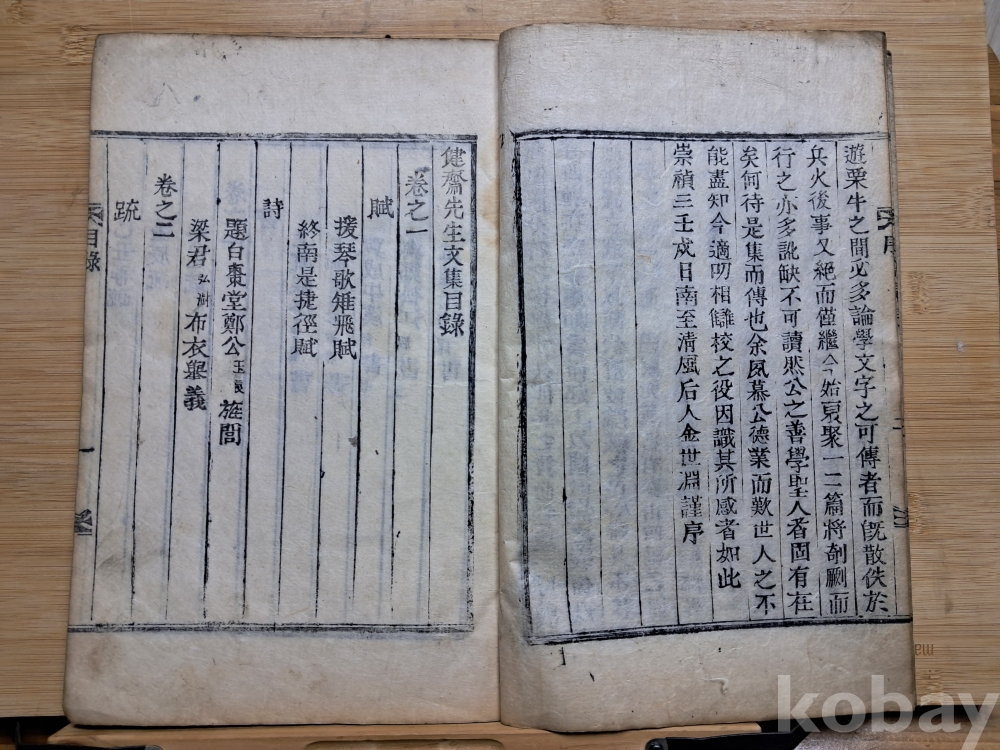 遊栗牛之間必多論學文字之可傳者而旣散佚於
兵火後事又絶而僅繼今始裒聚一二篇將剞劂而
行之亦多訛缺不可讀然公之善學聖人者固有在
矣何待是集而傳也余夙慕公德業而歎世人之不
能盡知今適叨相讎校之役因識其所感者如此
崇禎三壬戌日南至淸風后人金世淵謹序
序
二
健齋先生文集目錄
卷之一
賦
援琴歌雉飛賦
終南是捷徑賦
詩
題白棗堂鄭公旌閭
梁君弘澍布衣擧義
卷之二
疏
目錄
一
kobay